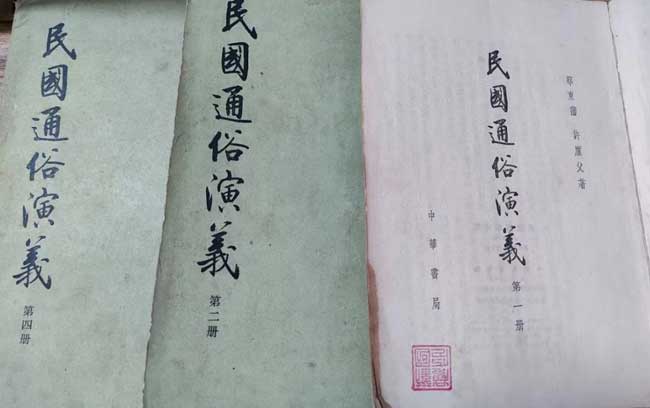 民國通俗演義
第四册
民國通俗演義
第二册
蔡東藩 許廑父著
民國通俗演義
第一册
中華書局